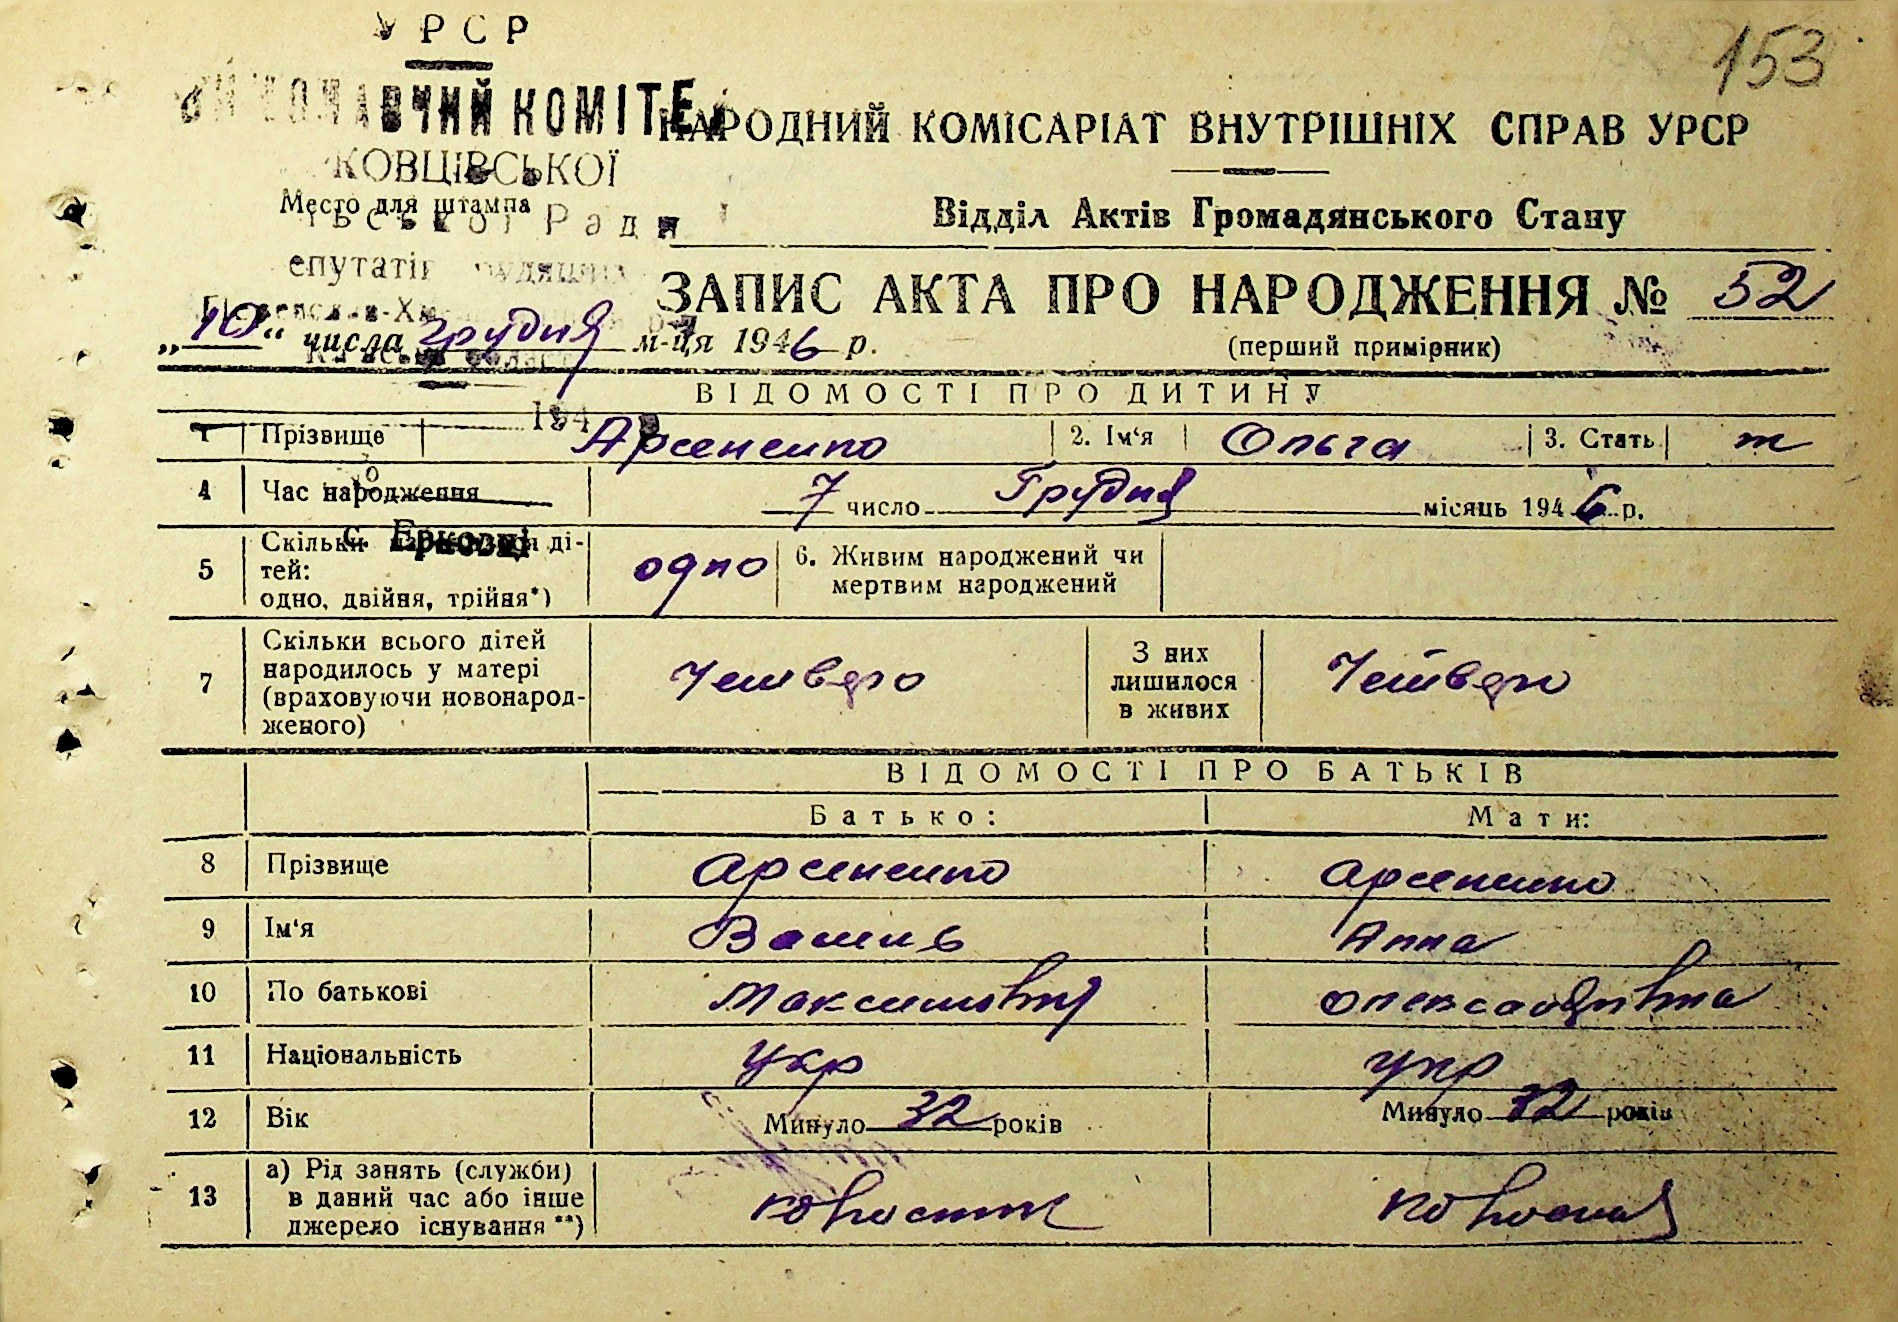 УРСР
ВИКОНАВЧИЙ КОМІТЕ
КОВЦІВСЬКОЇ
Ради
153
НАРОДНИЙ КОМІСАРІАТ ВНУТРІШНІХ СПРАВ УРСР
Место для штампа
Відділ Актів Громадянського Стану
ЗАПИС АКТА ПРО НАРОДЖЕННЯ № 52
„10“ числа грудня м-ця 1946 р.
(перший примірник)
ВІДОМОСТІ ПРО ДИТИНУ
194
1 Прізвище Арсененко 2. Ім‘я Ольга 3. Стать ж
4 Час народження 7 число Грудня місяць 1946 р.
с. Ерковці
5 Скільки ді-
тей:
одно, двійня, трійня*) одно 6. Живим народжений чи
мертвим народжений
7 Скільки всього дітей
народилось у матері
(враховуючи новонарод-
женого) Четверо З них
лишилося
в живих Четверо
ВІДОМОСТІ ПРО БАТЬКІВ
Батько: Мати:
8 Прізвище Арсененко Арсененко
9 Ім‘я Василь Анна
10 По батькові Максимович Олександрівна
11 Національність Укр укр
12 Вік Минуло 32 років Минуло 32 років
13 а) Рід занять (служби)
в даний час або інше
джерело існування **) колхосник колхосниця